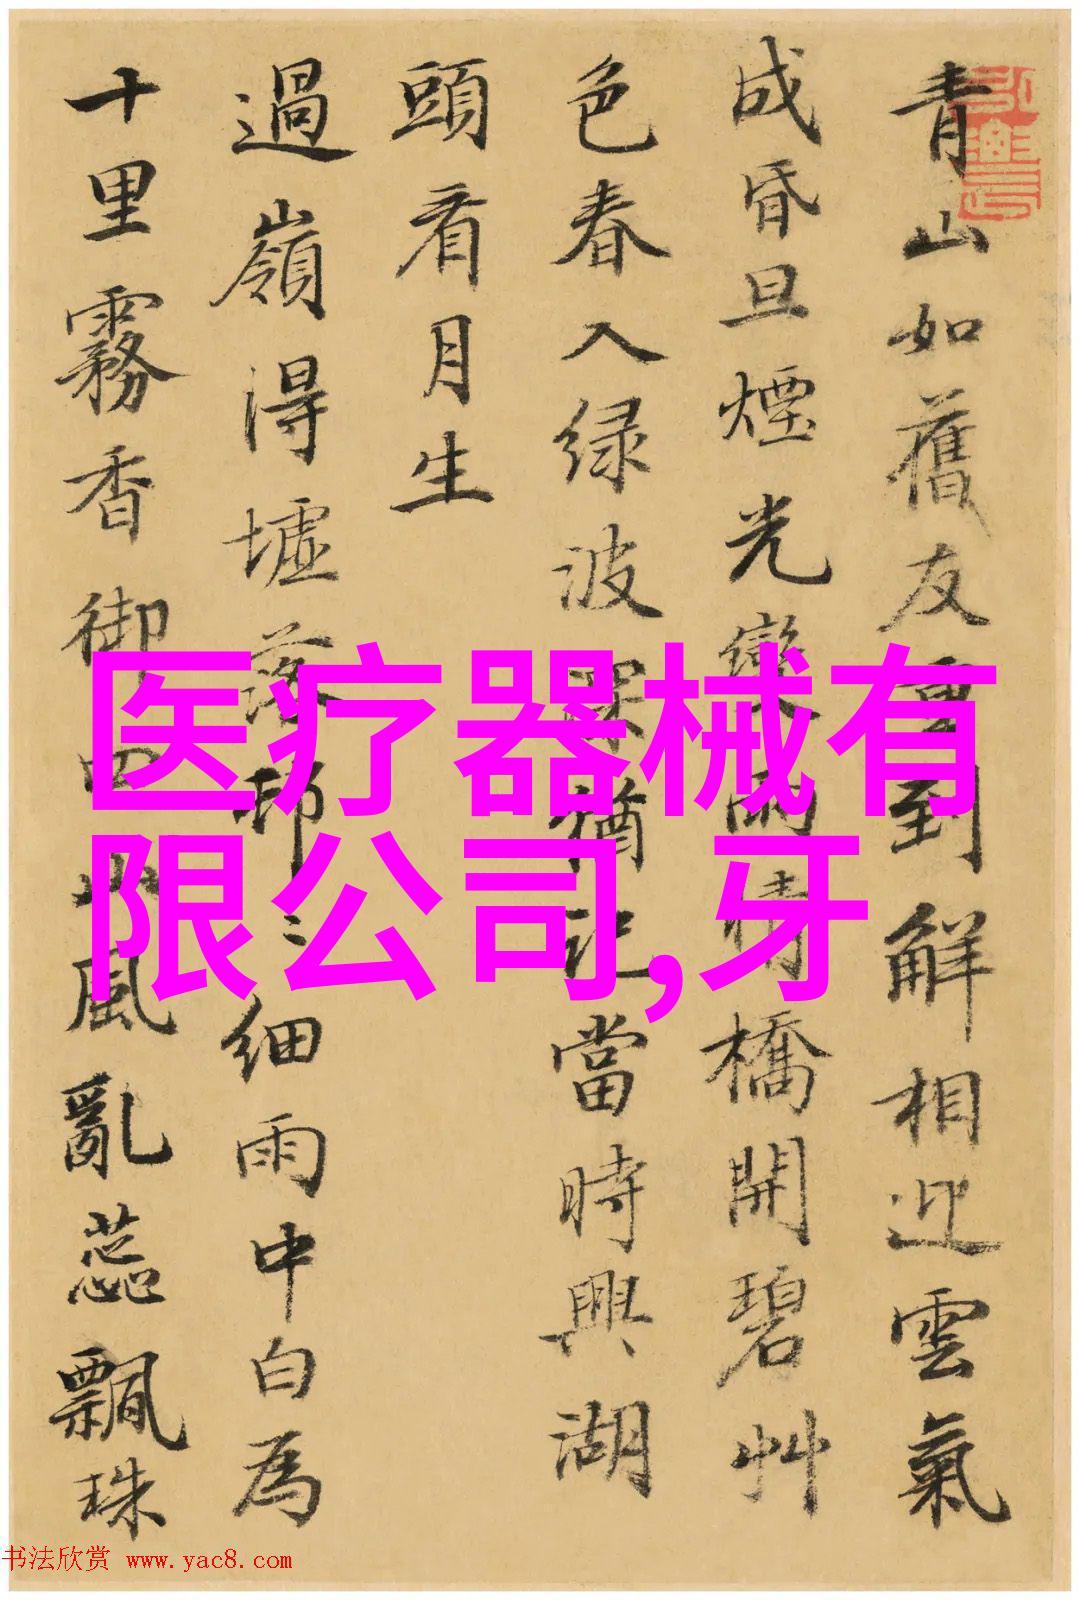 青山如舊友重到解相迎雲氣
成昏旦煙光變雨晴橋開碧艸
色春入绿波深猶記當時興湖
頭看月生
過嶺得墟落邨〻細雨中白為
十里霧香御四山風亂蕊飄珠
医疗器械有
限公司,牙
书法欣赏 www.yac8.com